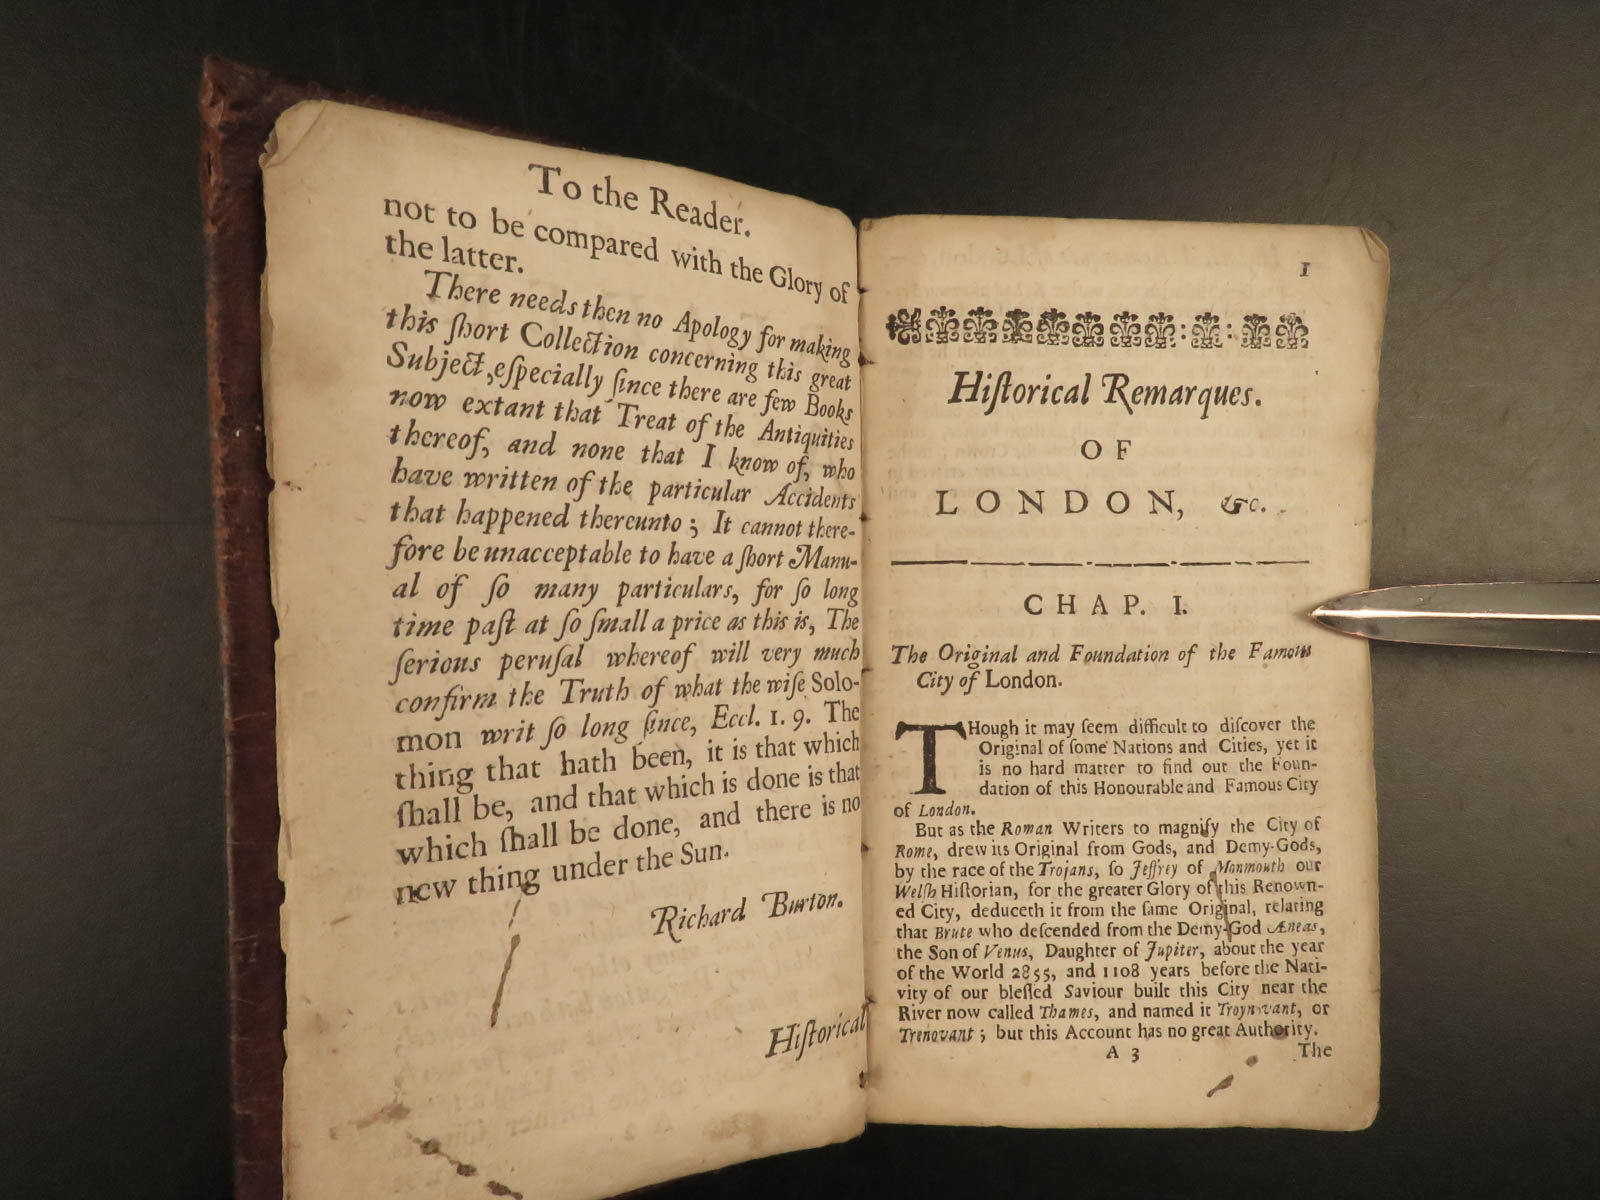 To the Reader.
not to be compared with the Glory of
the latter.
There needs then no Apology for making
this ſhort Collection concerning this great
Subject, eſpecially ſince there are few Books
now extant that Treat of the Antiquities
thereof, and none that I know of, who
have written of the particular Accidents
that happened thereunto; It cannot there-
fore be unacceptable to have a ſhort Manu-
al of ſo many particulars, for ſo long
time paſt at ſo ſmall a price as this is, The
ſerious peruſal whereof will very much
confirm the Truth of what the wiſe Solo-
mon writ ſo long ſince, Eccl. 1. 9. The
thing that hath been, it is that which
ſhall be, and that which is done is that
which ſhall be done, and there is no
new thing under the Sun.
Richard Burton.
Hiſtorical
1
Hiſtorical Remarques.
OF
LONDON, &c.
CHAP. I.
The Original and Foundation of the Famous
City of London.
THough it may ſeem difficult to diſcover the
Original of ſome Nations and Cities, yet it
is no hard matter to find out the Foun-
dation of this Honourable and Famous City
of London.
But as the Roman Writers to magnify the City of
Rome, drew its Original from Gods, and Demy-Gods,
by the race of the Trojans, ſo Jeffrey of Monmouth our
Welſh Hiſtorian, for the greater Glory of this Renown-
ed City, deduceth it from the ſame Original, relating
that Brute who deſcended from the Demy-God Æneas,
the Son of Venus, Daughter of Jupiter, about the year
of the World 2855, and 1108 years before the Nati-
vity of our bleſſed Saviour built this City near the
River now called Thames, and named it Troynovant, or
Trenovant; but this Account has no great Authority.
A 3
The